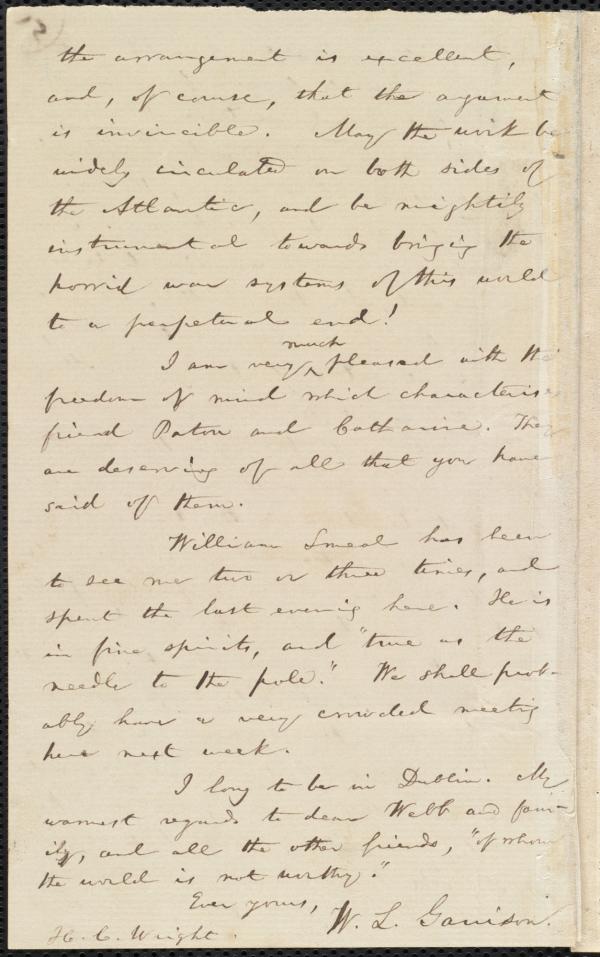 the arrangement is excellent,
and, of course, that the argument
is invincible. May the work be
widely circulated on both sides of
the Atlantic, and be mightily
instrumental towards bringing the
horrid war systems of this world
to a perpetual end!
I am very much pleased with the
freedom of mind which characterises
friend Paton and Catharine. They
are deserving of all that you have
said of them.
William Smeal has been
to see me two or three times, and
spent the last evening here. He is
in fine spirits, and "true as the
needle to the pole." We shall prob-
ably have a very crowded meeting
here next week.
I long to be in Dublin. My
warmest regards to dear Webb and fam-
ily, and all the other friends, "of whom
the world is not worthy."
Ever yours,
W. L. Garrison.
H. C. Wright.